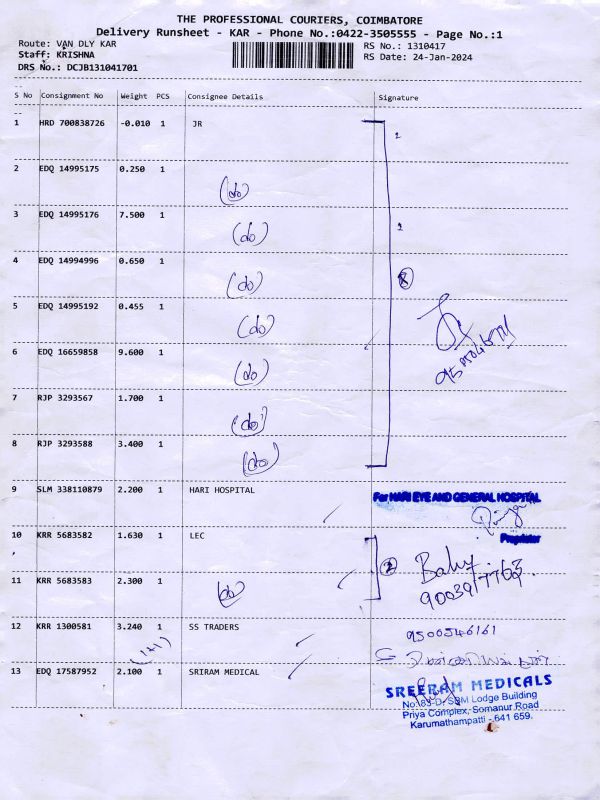 THE PROFESSIONAL COURIERS, COIMBATORE
Delivery Runsheet - KAR - Phone No.:0422-3505555 - Page No.:1
Route: VAN DLY KAR
RS No.: 1310417
Staff: KRISHNA
RS Date: 24-Jan-2024
DRS No.: DCJB131041701
S No Consignment No Weight PCS Consignee Details Signature
1 HRD 700838726 -0.010 1 JR
2 EDQ 14995175 0.250 1 (do)
3 EDQ 14995176 7.500 1 (do)
4 EDQ 14994996 0.650 1 (do)
5 EDQ 14995192 0.455 1 (do)
6 EDQ 16659858 9.600 1 (do)
7 RJP 3293567 1.700 1 (do)
8 RJP 3293588 3.400 1 (do)
9 SLM 338110879 2.200 1 HARI HOSPITAL
For HARI EYE AND GENERAL HOSPITAL
Proprietor
10 KRR 5683582 1.630 1 LEC
2
11 KRR 5683583 2.300 1 (do)
12 KRR 1300581 3.240 1 SS TRADERS 9500546161
(1+1)
13 EDQ 17587952 2.100 1 SRIRAM MEDICAL
SREERAM MEDICALS
No:83-D, SBM Lodge Building
Priya Complex, Somanur Road
Karumathampatti - 641 659.